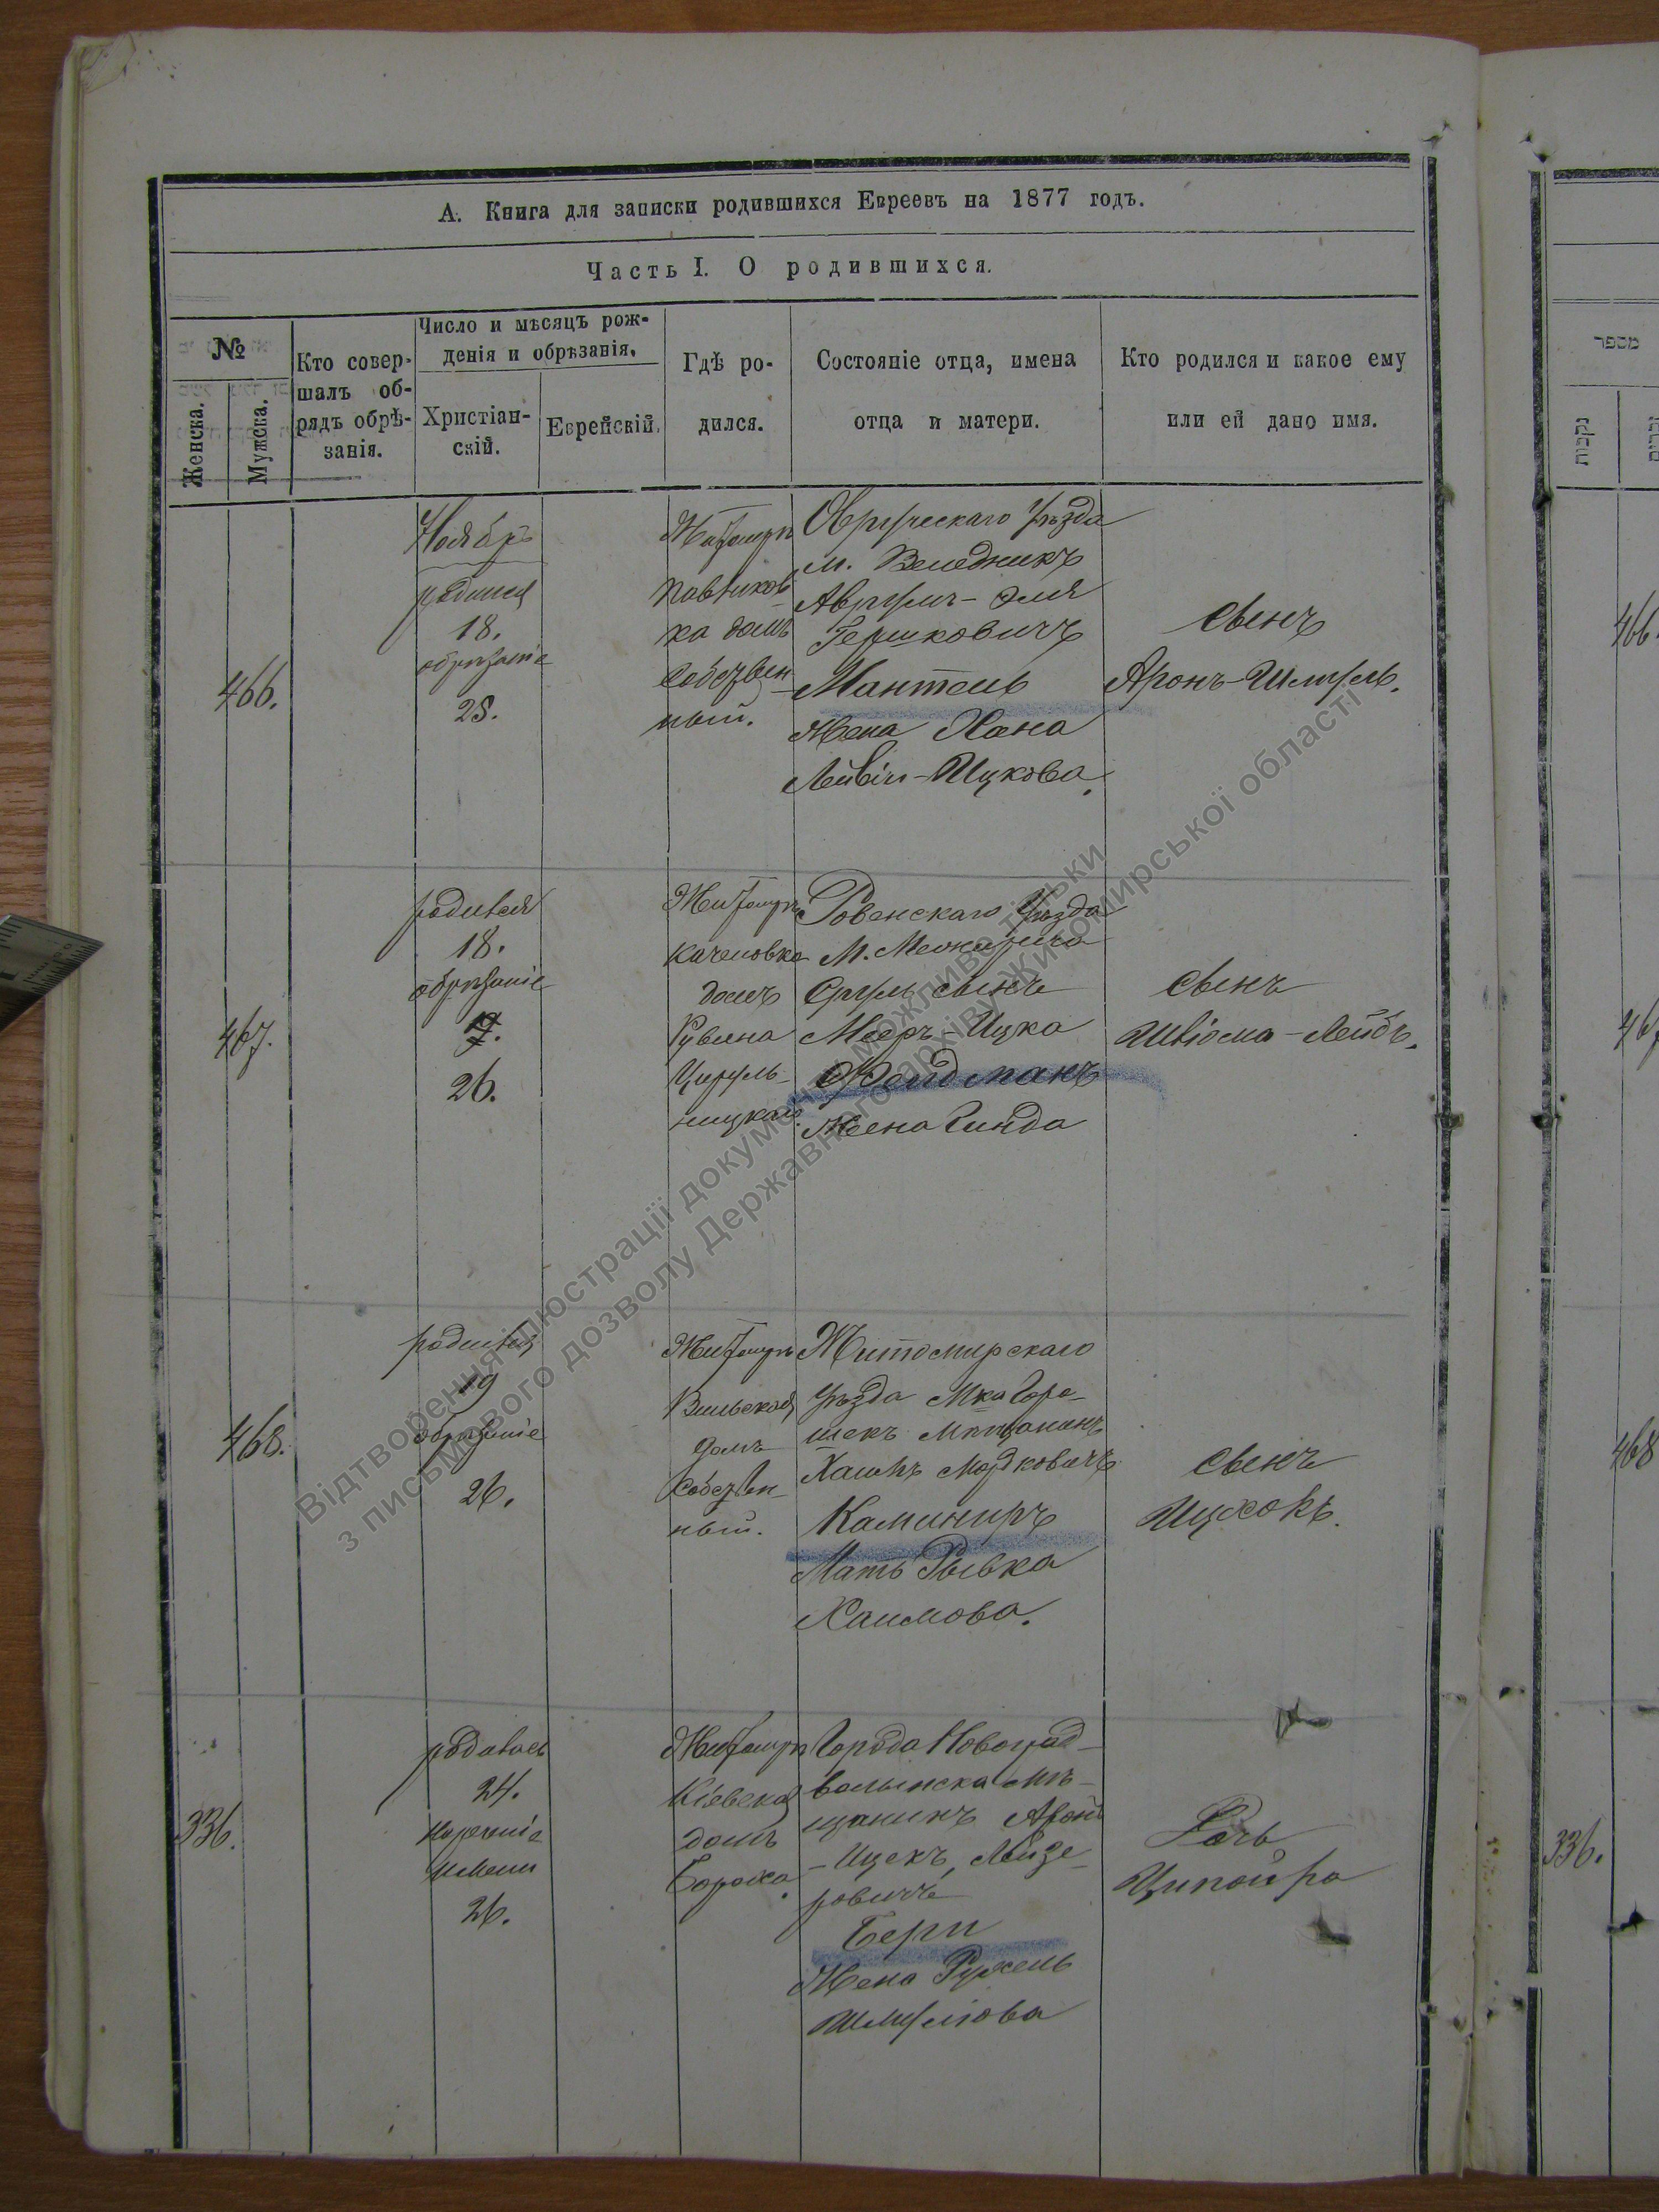 А. Книга для записки родившихся Евреевъ на 1877 годъ.
Часть I. О родившихся.
№
Женска.
Мужска.
Кто совер-
шалъ об-
рядъ обрѣ-
занія.
Число и мѣсяцъ рож-
денія и обрѣзанія.
Христіан-
скій.
Еврейскій.
Гдѣ ро-
дился.
Состояніе отца, имена
отца и матери.
Кто родился и какое ему
или ей дано имя.
466.
Ноябрь
родился
18.
обрѣзаніе
25.
Житомиръ
ка домъ
собствен-
ный.
Овручскаго Уѣзда
м. Веледникъ
Аврумъ-Эля
Гершковичъ
Мантель
Жена Хана
Ицкова.
Сынъ
Аронъ-Шмуль.
467.
родился
18.
обрѣзаніе
26.
Житомиръ
Каченовка
домъ
Рувина
Цируль-
ницкаго.
Ровенскаго Уѣзда
М. Межирича
Сруль сынъ
Мееръ-Ицка
Фельдманъ
Жена Гинда
Сынъ
Шлiома-Лейбъ.
468.
родился
19
обрѣзаніе
26.
Житомиръ
Вильская
домъ
собствен-
ный.
Житомирскаго
Уѣзда Мка Горо-
шекъ Мѣщанинъ
Мордковичъ
Каминиръ
Мать Рывка
Хаимова.
Сынъ
Ицхокъ.
336.
родилась
24.
нареченіе
имени
26.
Житомиръ
Кіевская
домъ
Бороха.
Города Новоград-
волынска Мѣ-
щанинъ Аронъ
-Ицекъ Лейзе-
ровичъ
Берп
Жена Рухель
Шмулiова
Дочь
Ципойра
מספר
נקבות
זכרים
466
467
468
336.
Відтворення ілюстрації документу можливо тільки
з письмового дозволу Державного архіву Житомирської області